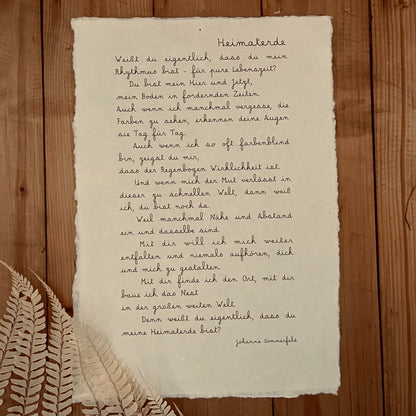 Heimaterde
Weißt du eigentlich, dass du mein
Rhythmus bist - für pure Lebenszeit?
Du bist mein Hier und Jetzt,
mein Boden in fordernden Zeiten.
Auch wenn ich manchmal vergesse, die
Farben zu sehen, erkennen deine Augen
sie Tag für Tag.
Auch wenn ich so oft farbenblind
bin, zeigst du mir,
dass der Regenbogen Wirklichkeit ist.
Und wenn mich der Mut verlässt in
dieser zu schnellen Welt, dann weiß
ich, du bist noch da.
Weil manchmal Nähe und Abstand
ein und dasselbe sind.
Mit dir will ich mich weiter
entfalten und niemals aufhören, dich
und mich zu gestalten.
Mit dir finde ich den Ort, mit dir
baue ich das Nest
in der großen weiten Welt.
Denn weißt du eigentlich, dass du
meine Heimaterde bist?
Johanna Sommerfels